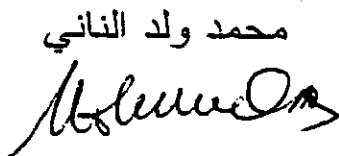 محمد ولد الناني